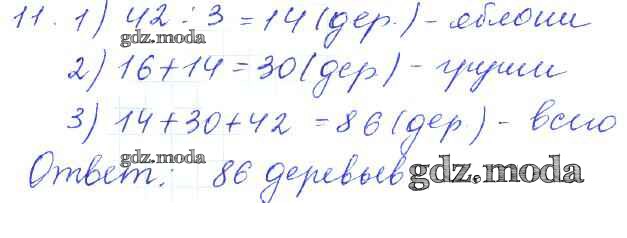 11. 1) 42 : 3 = 14 (дер.) - яблони
gdz.moda
2) 16 + 14 = 30 (дер) - груши
gdz.moda
3) 14 + 30 + 42 = 86 (дер.) - всего
gdz.moda
Ответ: 86 деревьев
gdz.moda